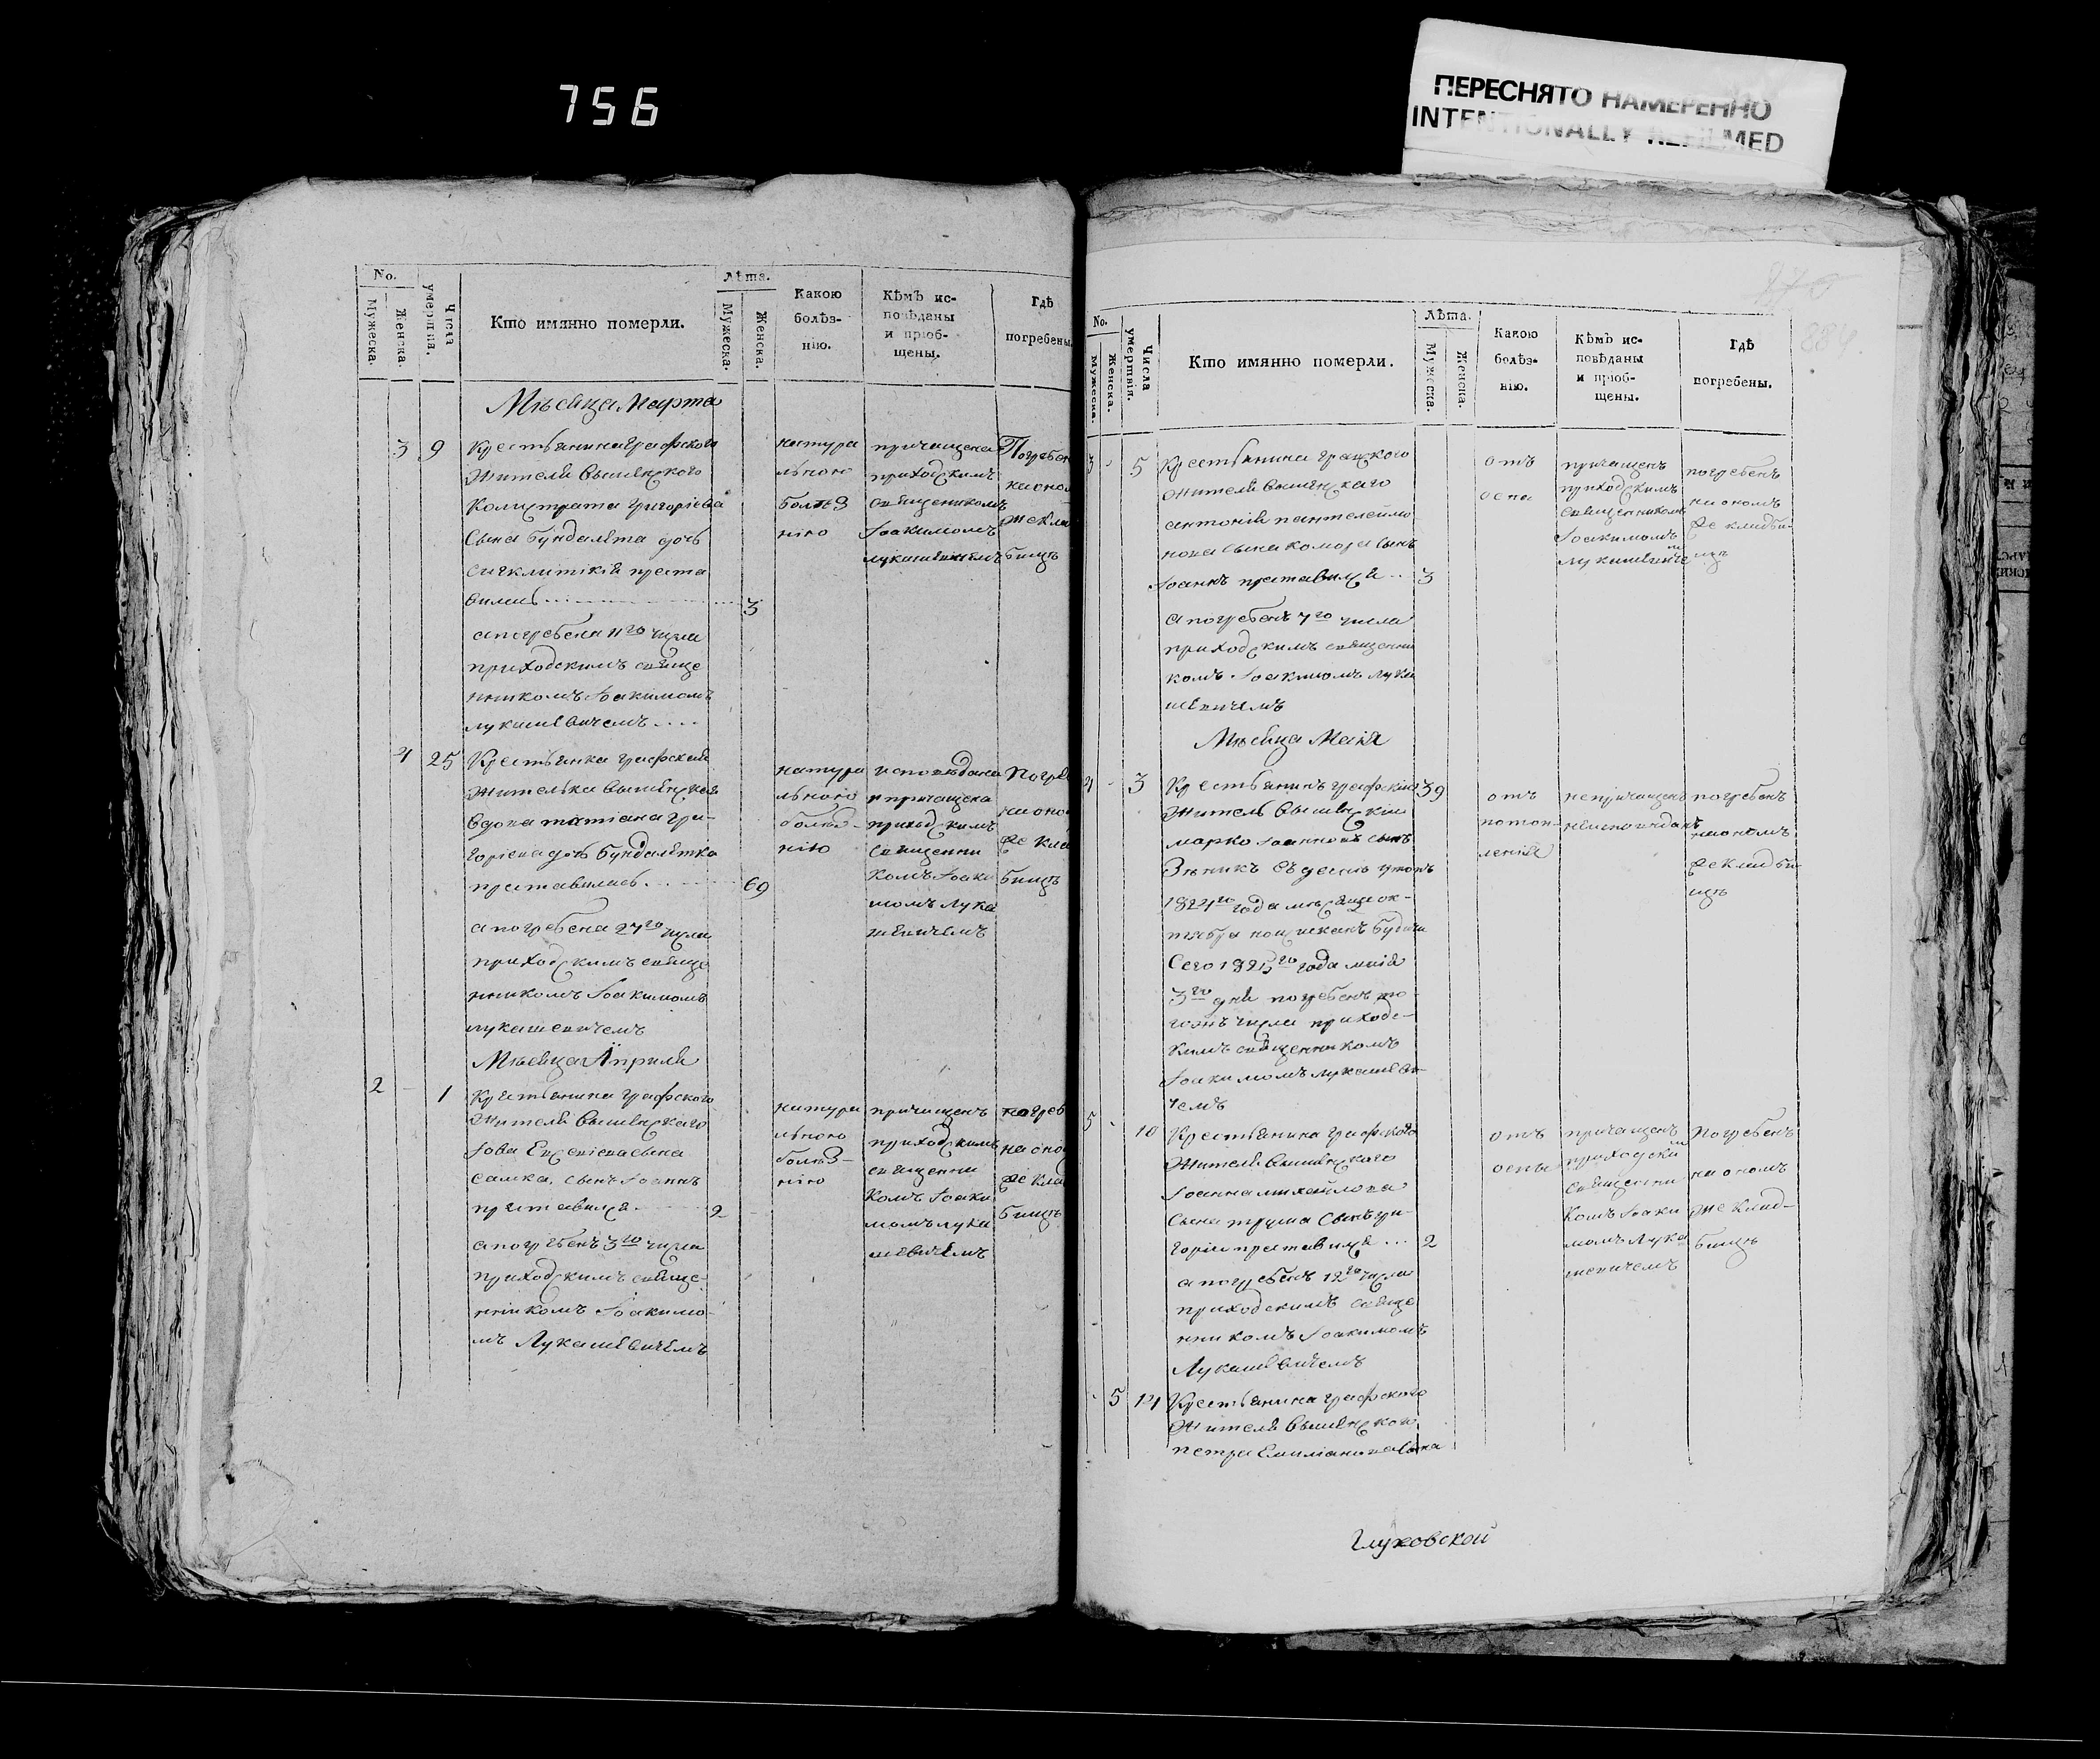 756
ПЕРЕСНЯТО НАМЕРЕННО
INTENTIONALLY REFILMED
No.
Мужеска.
Женска.
Числа умертвія.
Кто имянно померли.
Лѣта.
Мужеска.
Женска.
Какою болѣз-
нію.
Кѣмъ ис-
повѣданы
и пріоб-
щены.
Гдѣ
погребены.
Мѣсяца Марта
3 9 Крестьянина Графского
жителя вышенского
Калистрата Григоріева
сына Бундалета дочь
Сигклитікія преста
вилась 3
а погребена 11го числа
приходскимъ свяще
нникомъ Іоакимомъ
Лукашевичемъ
натура
льною
болѣз
нію
причащена
приходскимъ
священикомъ
Іоакимомъ
Лукашевичемъ
Погребен
на оном
же кла
бищѣ
4 25 Крестьянка графская
жителька вышенская
вдова татіана Гри-
горіева дочь Бундалетка
преставилась 69
а погребена 27го числа
приходскимъ свяще
нникомъ Іоакимомъ
Лукашевичемъ
натура
льною
болѣз-
нію
исповѣдана
и причащена
приходскимъ
священни
комъ Іоаки
момъ Лука
шевичемъ
Погре
на оно
же кла
бищѣ
Мѣсяца Априля
2 1 Крестьянина графского
жителя вышенскаго
Іова Евсевіева сына
Самка, сынъ Іоаннъ
преставился 2
а погребенъ 3го числа
приходскимъ свяще-
нникомъ Іоакимо-
мъ Лукашевичемъ
натура
льною
болѣз-
нію
причащенъ
приходскимъ
священни
комъ Іоаки
момъ Лука
шевичемъ
погреб
на оно
же кла
бищѣ
No.
Мужеска.
Женска.
Числа умертвія.
Кто имянно померли.
Лѣта.
Мужеска.
Женска.
Какою
болѣз-
нію.
Кѣмъ ис-
повѣданы
и пріоб-
щены.
Гдѣ
погребены.
3 5 Крестьянина графского
жителя вышенскаго
антонія пантелеймо
нова сына комора сынъ
Іоаннъ преставился 3
а погребенъ 7го числа
приходскимъ священни
комъ Іоакимомъ Лука
шевичемъ
отъ
оспа
причащенъ
приходскимъ
священникомъ
Іоакимомъ
Лукашевичемъ
погребенъ
на ономъ
же кладби-
щѣ
Мѣсяца Маія
4 3 Крестьянинъ графскій 39
житель вышенскій
марко Іоанновъ сынъ
1824го года мѣсяца ок-
тября
Сего 1825го года маія
3го дня погребенъ то-
гожъ числа приходс-
кимъ священникомъ
Іоакимомъ Лукашеви-
чемъ
отъ
потоп-
ленія
непричащенъ
неисповѣданъ
погребенъ
на ономъ
же кладби-
щѣ
5 10 Крестьянина графского
жителя вышенскаго
Іоанна михайлова
сына труша сынъ гри-
горій преставился 2
а погребенъ 12го числа
приходскимъ свяще
нникомъ Іоакимомъ
Лукашевичемъ
отъ
оспы
причащенъ
приходским
священни
комъ Іоаки
момъ Лука
шевичемъ
Погребенъ
на ономъ
же клад-
бищѣ
5 14 Крестьянина графского
жителя вышенского
петра Емиліанова сына
Глуховской